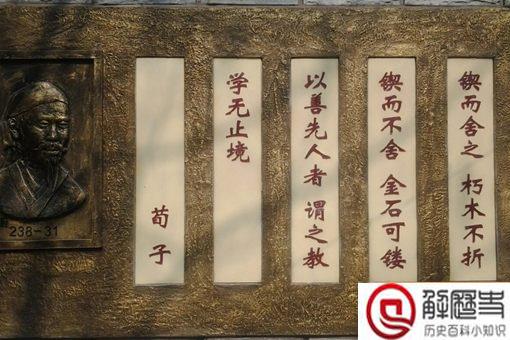 锲而舍之 朽木不折
锲而不舍 金石可镂
以善先人者 谓之教
学无止境
荀子
238-31
解歷史
历史百科小知识